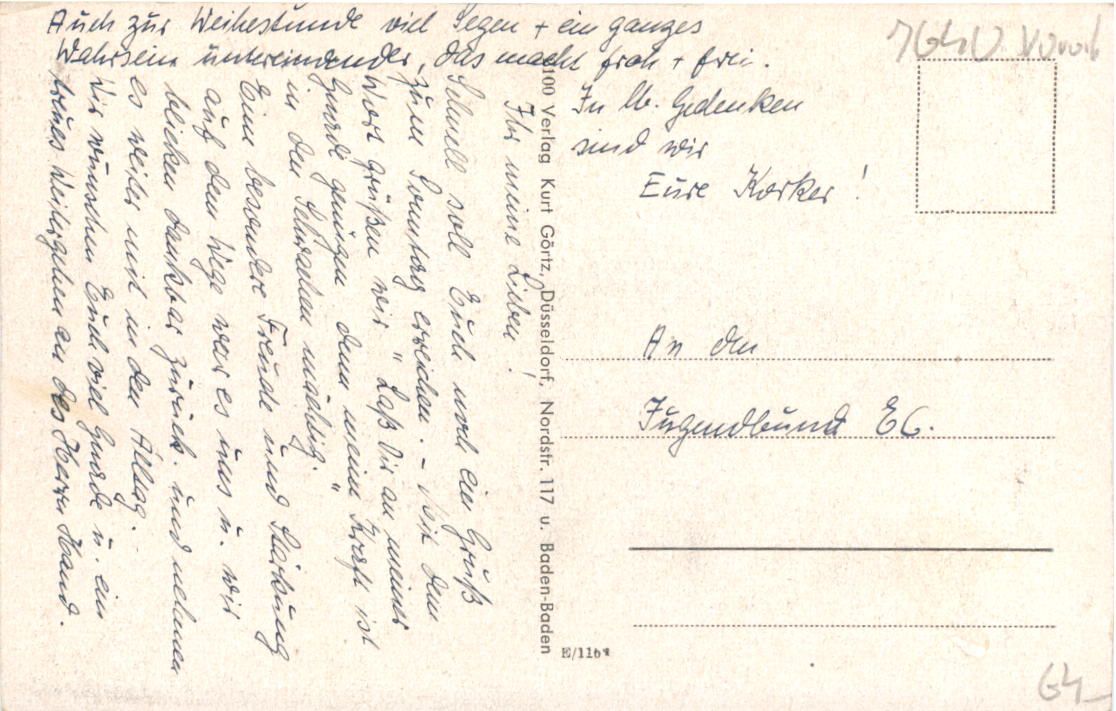 Ihr meine Lieben!
Schnell soll Euch noch ein Gruß
zum Sonntag erreichen. – Mit dem
Wort grüßen wir „Laß Dir an meiner
Gnade genügen denn meine Kraft ist
in den Schwachen mächtig."
Eine besondere Freude und Stärkung
auf dem Wege war es uns u. wir
blicken dankbar zurück und nehmen
es weiter mit in den Alltag.
Wir wünschen Euch viel Gnade u. ein
treues Weitergehen an des Herrn Hand.
Auch zur Weihestunde viel Segen + ein ganzes
Wahrsein untereinander, das macht froh + frei.
In lb. Gedenken
sind wir
Eure Korker!
100 Verlag Kurt Görtz, Düsseldorf, Nordstr. 117 u. Baden-Baden
An den
Jugendbund EC.
E/1164
64